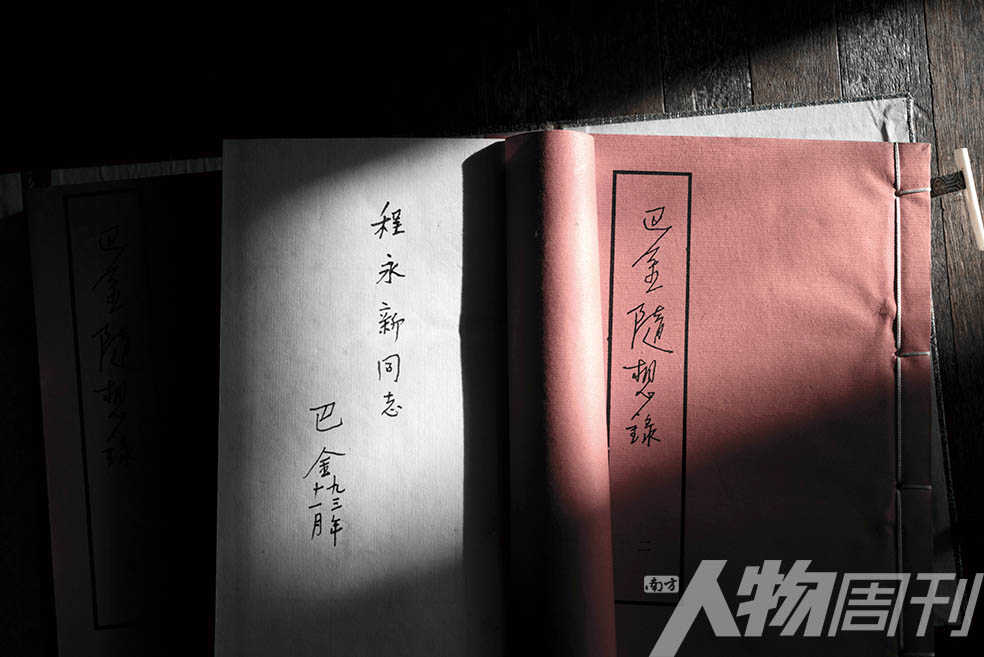 程永新同志
巴金
九三年
十一月
巴金隨想錄
二
巴金隨想錄
南方
人物周刊